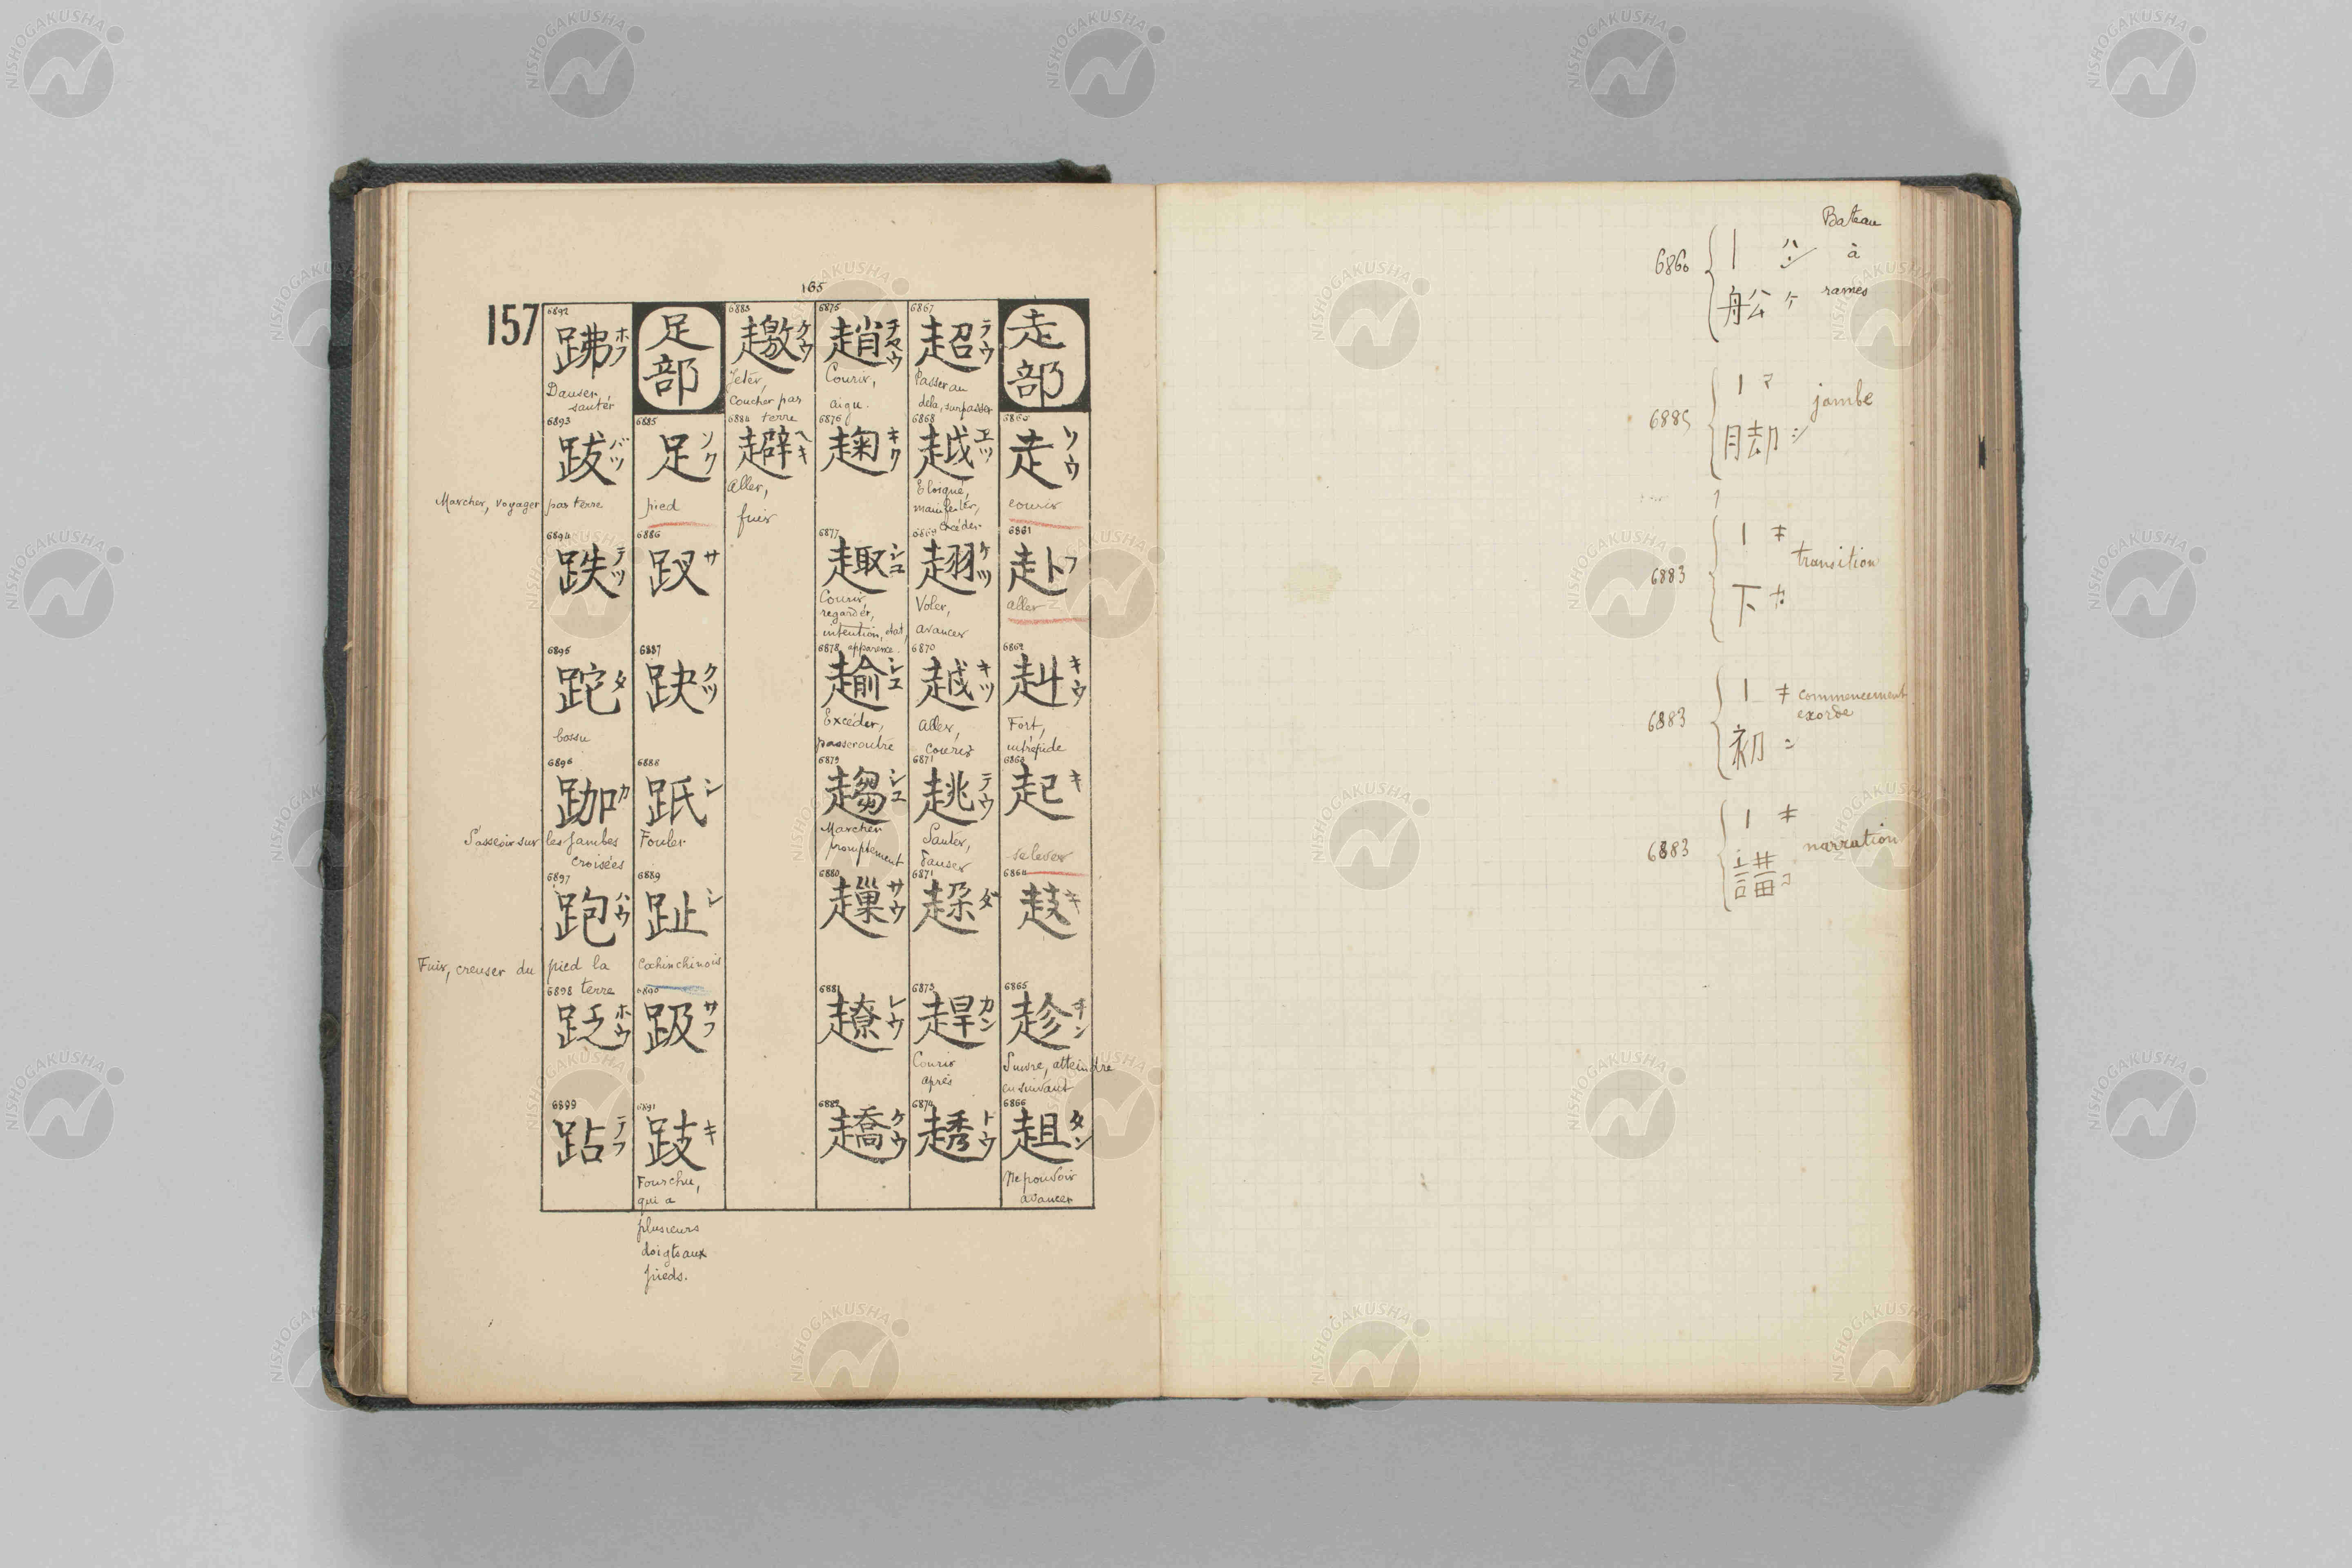 165
157
走部
6860
走 ソウ
courir
6861
赴 フ
aller
6862
赳 キウ
Fort,
intrépide
6863
起 キ
se lever
6864
キ
6865
趁 チン
Suivre, atteindre
en suivant
6866
趄 タン
Ne pouvoir
avancer
6867
超 テウ
Passer au
dela, surpasser
6868
越 エツ
Eloigné,
manifester,
excéder
6869
ケツ
Voler,
avancer
6870
キツ
aller,
courir
6871
趒 テウ
Sauter,
danser
6871
趓 ダ
6873
趕 カン
Courir
après
6874
トウ
6875
趙 チヤウ
Courir,
aigu.
6876
趜 キク
6877
趣 シユ
Courir,
regarder,
intention, état,
apparence.
6878
シユ
Excéder,
passer outre
6879
趨 シユ
Marcher
promptement
6880
サウ
6881
レウ
6882
趫 ケウ
6883
ケウ
Jeter,
Coucher par
terre
6884
ヘキ
aller,
fuir
足部
6885
足 ソク
pied
6886
サ
6887
趹 クツ
6888
シ
Fouler
6889
趾 シ
Cochinchinois
6890
趿 サフ
6891
跂 キ
Fourchu,
qui a
plusieurs
doigts aux
pieds.
6892
跰 ホフ
Danser,
sauter
6893
跋 バツ
Marcher, voyager par terre
6894
跌 テツ
6895
跎 タ
bossu
6896
跏 カ
S'asseoir sur les jambes
croisées
6897
跑 ハウ
Fuir, creuser du pied la
terre
6898
ホウ
6899
跕 テフ
Bateau
6860 à
舩 ケ rames
6885 マ jambe
脚 シ
6883 キ transition
下 カ
6883 キ commencement
初 exorde
6883 キ narration
講 コ
NISHOGAKUSHA